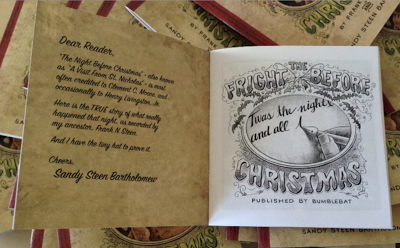 Dear Reader,
"The Night Before Christmas" - also known
as "A Visit From St. Nicholas" - is most
often credited to Clement C. Moore, and
occasionally to Henry Livingston, Jr.
Here is the TRUE story of what really
happened that night, as recorded by
my ancestor, Frank N. Steen.
And I have the tiny hat to prove it.
Cheers,
Sandy Steen Bartholomew
THE
FRIGHT BEFORE
Twas the night
and all
CHRISTMAS
PUBLISHED BY BUMBLEBAT
CHRISTMAS
BY FRANK
SANDY STEEN BAR